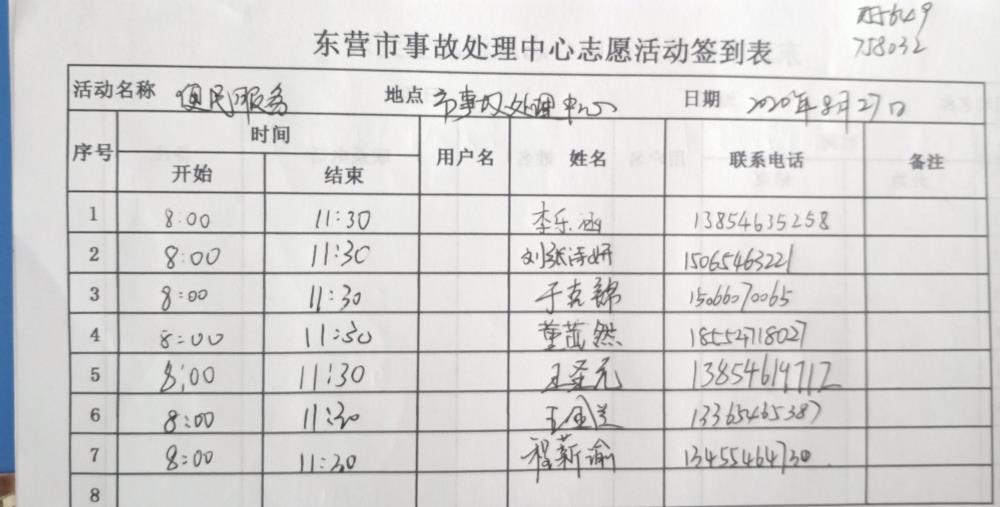 758032
东营市事故处理中心志愿活动签到表
活动名称 便民服务 地点 市事故处理中心 日期 2020年8月27日
序号 时间 用户名 姓名 联系电话 备注
开始 结束
1 8:00 11:30 李乐涵 13854635258
2 8:00 11:30 刘张诗妍 15065463221
3 8:00 11:30 于克锦 15066070065
4 8:00 11:30 董茁然 18554718027
5 8:00 11:30 王圣元 13854619712
6 8:00 11:30 13365465387
7 8:00 11:30 程薪谕 13455464730
8